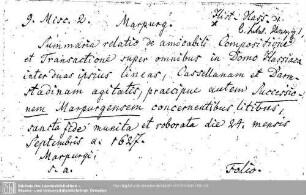 9. Misc. 2. Marpurg. Hist. Hass.
Summaria relatio de amicabili Compositione
et Transactione super omnibus in Domo Hassiaca
inter duas ipsius lineas, Cassellanam et Darm-
stadinam agitatis, praecipue autem Successio-
nem Marpurgensem concernentibus litibus,
sancta fide munita et roborata die 24. mensis
Septembris a. 1627.
Marpurgi,
s. a. Folio.